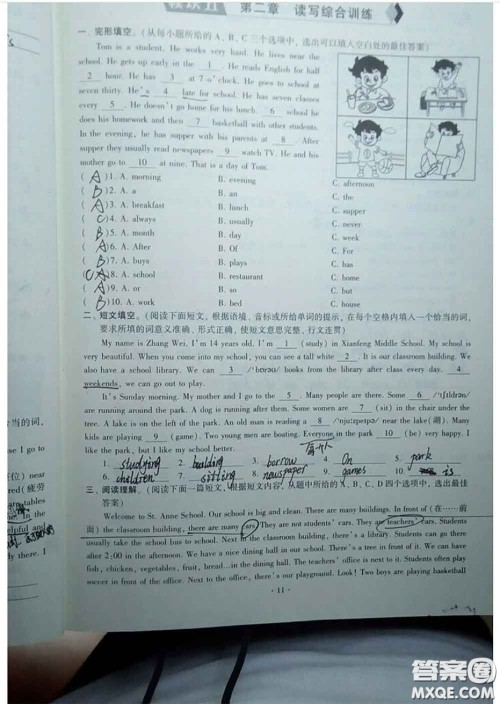 模块11 第二章 读写综合训练
一、完形填空。(从每小题所给的 A、B、C 三个选项中,选出可以填入空白处的最佳答案)
Tom is a student. He works very hard. He lives near the
school. He gets up early in the 1 . He reads English for half
2 hour. He has 3 at 7 o'clock. He goes to school at
seven thirty. He's 4 late for school. He has seven classes
every 5 . He doesn't go home for his lunch. 6 school he
does his homework and then 7 basketball with other students.
In the evening, he has supper with his parents at 8 . After
supper they usually read newspapers 9 watch TV. He and his
mother go to 10 at nine. That is a day of Tom.
( A )1. A. morning B. evening C. afternoon
( B )2. A. a B. an C. the
( A )3. A. breakfast B. lunch C. supper
( C )4. A. always B. usually C. never
( B )5. A. month B. day C. week
( A )6. A. After B. Of C. For
( B )7. A. buys B. plays C. has
( C A )8. A. school B. restaurant C. home
( A )9. A. or B. so C. but
( B )10. A. work B. bed C. house
二、短文填空。(阅读下面短文,根据语境、音标或所给单词的提示,在每个空格内填入一个恰当的词,
要求所填的词意义准确、形式正确,使短文意思完整,行文连贯)
My name is Zhang Wei. I'm 14 years old. I'm 1 (study) in Xianfeng Middle School. My school is
very beautiful. When you come into my school, you can see a tall white 2 . It is our classroom building. We
also have a school library. We can 3 /ˈbɒrəʊ/ books from the library after class every day. 4
weekends, we can go out to play.
It's Sunday morning. My mother and I go to the 5 . Many people are there. Some 6 /ˈtʃɪldrən/
are running around the park. A dog is running after them. Some women are 7 (sit) in the chair under the
tree. A lake is on the left of the park. An old man is reading a 8 /ˈnjuːzpeɪpə/ near the lake(湖). Many
kids are playing 9 (game). Two young men are boating. Everyone in the park 10 (be) very happy. I
like the park, but I like my school better.
1. studying 2. building 3. borrow 4. On 5. park
6. children 7. sitting 8. newspaper 9. games 10. is
三、阅读理解。(阅读下面一篇短文,根据短文内容,从题中所给的 A、B、C、D 四个选项中,选出最佳
答案)
Welcome to St. Anne School. Our school is big and clean. There are many buildings. In front of (在……前
面) the classroom building, there are many cars. They are not students' cars. They are teachers' cars. Students
usually take the school bus to school. Next to the classroom building, there's a library. Students can go there
after 2:00 in the afternoon. We have a nice dining hall in our school. There's a tree in front of it. We can have
fish, chicken, vegetables, fruit, bread...in the dining hall. The teachers' office is next to it. Students often play
soccer in front of the office. Next to the office, there's our playground. Look! Two boys are playing basketball
· 11 ·
答案圈
MXQE.COM